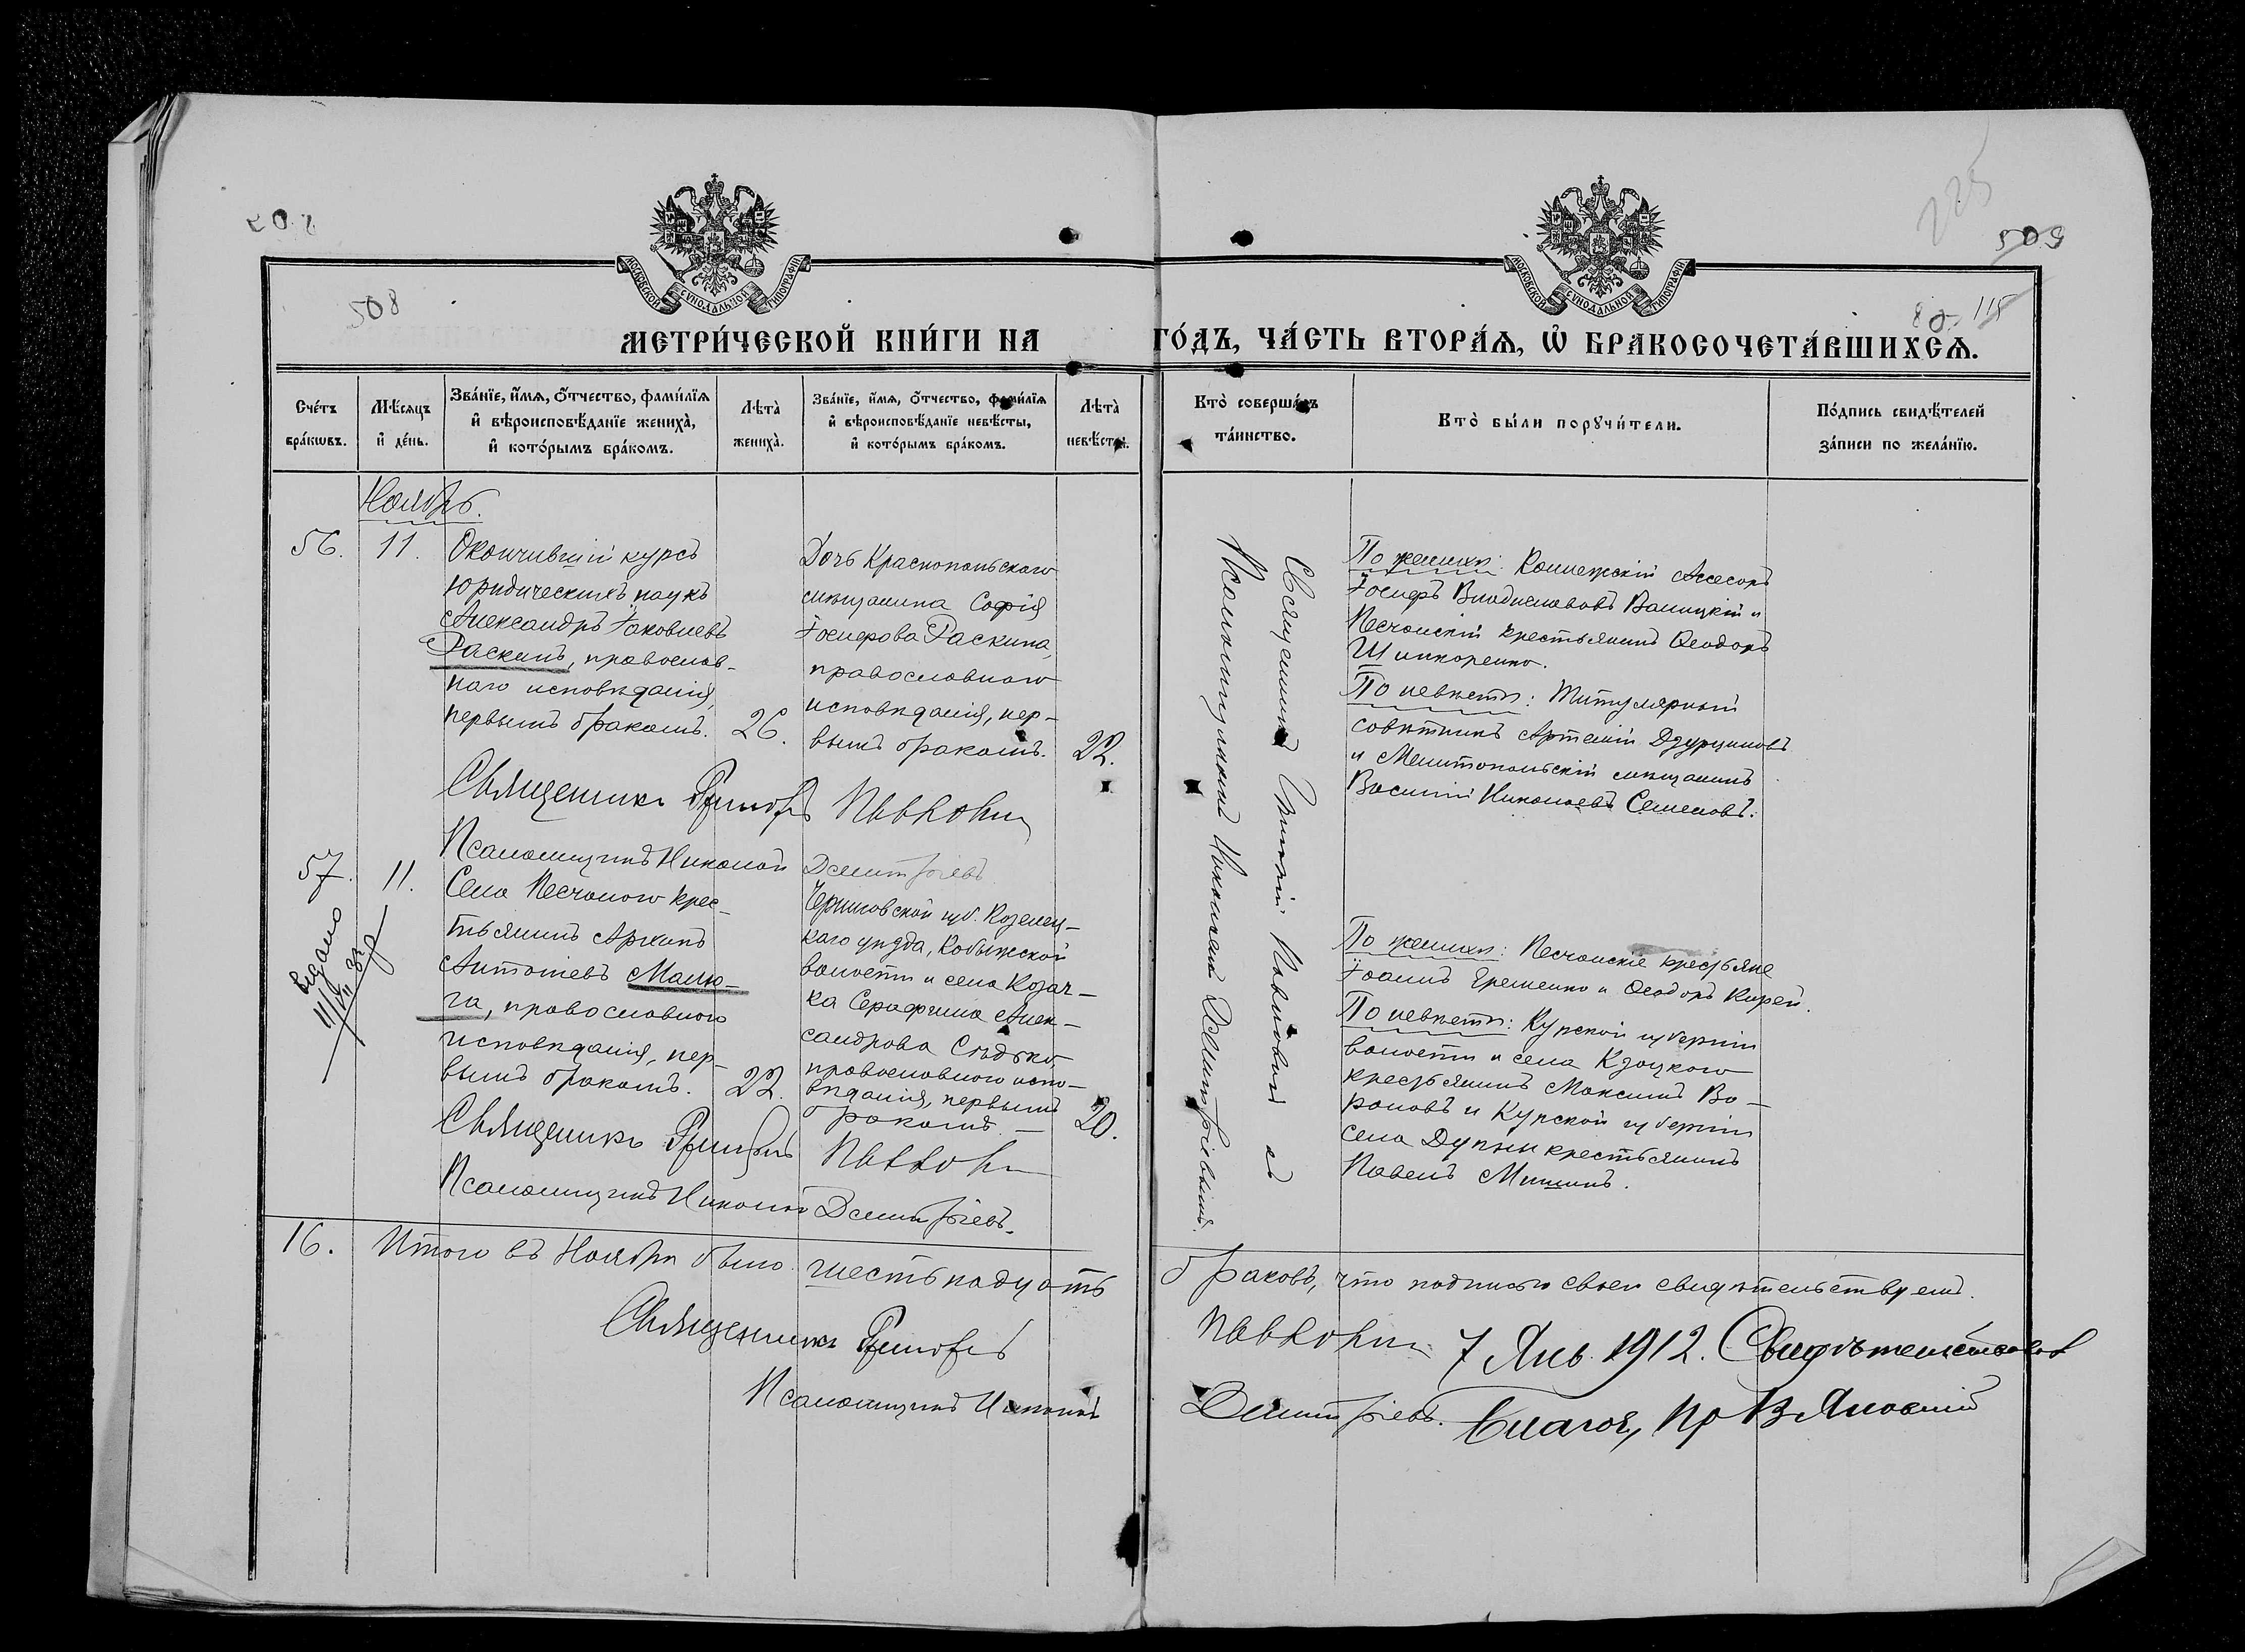 225
509
508
80. 115
МОСКОВСКОЙ СѴНОДАЛЬНОЙ ТИПОГРАФІИ
МОСКОВСКОЙ СѴНОДАЛЬНОЙ ТИПОГРАФІИ
МЕТРИ́ЧЕСКОЙ КНИ́ГИ НА ГО́ДЪ, ЧА́СТЬ ВТОРА́Ѧ, Ѽ БРАКОСОЧЕТА́ВШИХСѦ.
Сче́тъ бра́кѡвъ.
Мѣ́сѧцъ и҆ де́нь.
Зва́нїе, и҆́мѧ, ѻ҆́тчество, фами́лїѧ
и҆ вѣроисповѣ́данїе жениха̀,
и҆ кото́рымъ бра́комъ.
Лѣта̀ жениха̀.
Зва́нїе, и҆́мѧ, ѻ҆́тчество, фами́лїѧ
и҆ вѣроисповѣ́данїе невѣ́сты,
и҆ кото́рымъ бра́комъ.
Лѣта̀ невѣ́сты.
Кто̀ соверша́лъ
та́инство.
Кто̀ бы́ли порꙋчи́тели.
По́дпись свидѣ́телей
за́писи по жела́нїю.
Ноябрь.
56.
11.
Окончившій курсъ
юридическихъ наукъ
Александръ Іаковлевъ
Раскинъ, православ-
наго исповѣданія,
первымъ бракомъ.
26.
Дочь Краснопольскаго
мѣщанина Софія
Іосифова Раскина,
православнаго
исповѣданія, пер-
вымъ бракомъ.
22.
Священникъ Григорій Павловъ съ
Псаломщикомъ Николаемъ Димитріевымъ.
По женихѣ: Коллежскій Ассесоръ
Іосифъ Владиславовъ Валицкій и
Песчанскій крестьянинъ Ѳеодоръ
Шинкоренко.
По невѣстѣ: Титулярный
совѣтникъ Артемій
и Мелитопольскій мѣщанинъ
Василій Николаевъ Семеновъ.
Священникъ
Псаломщикъ Николай Димитріевъ
57.
11.
Видано
Села Песчанаго крес-
тьянинъ Архипъ
Антоніевъ Малю-
га, православнаго
исповѣданія, пер-
вымъ бракомъ.
22.
Черниговской губ. Козелец-
каго уѣзда, Кобыжской
волости и села Козач-
ка Серафима Алек-
сандрова Слѣдько,
православнаго испо-
вѣданія, первымъ
бракомъ. —
20.
По женихѣ: Песчанскіе крестьяне
Іоаннъ Гременко и Ѳеодоръ Кирей.
По невѣстѣ: Курской губерніи
волости и села Кзацкаго
крестьянинъ Максимъ Во-
роновъ и Курской губерніи
села Дупны крестьянинъ
Павелъ Мишинъ.
Священникъ
Псаломщикъ Николай Димитріевъ.
16.
Итого въ Ноябрѣ было шестьнадцать браковъ, что подписью своею свидѣтельствуемъ.
Священникъ
7 Янв. 1912. Свидѣтельствовалъ
Псаломщикъ Николай Димитріевъ.
Благоч. Пр В Яновскій